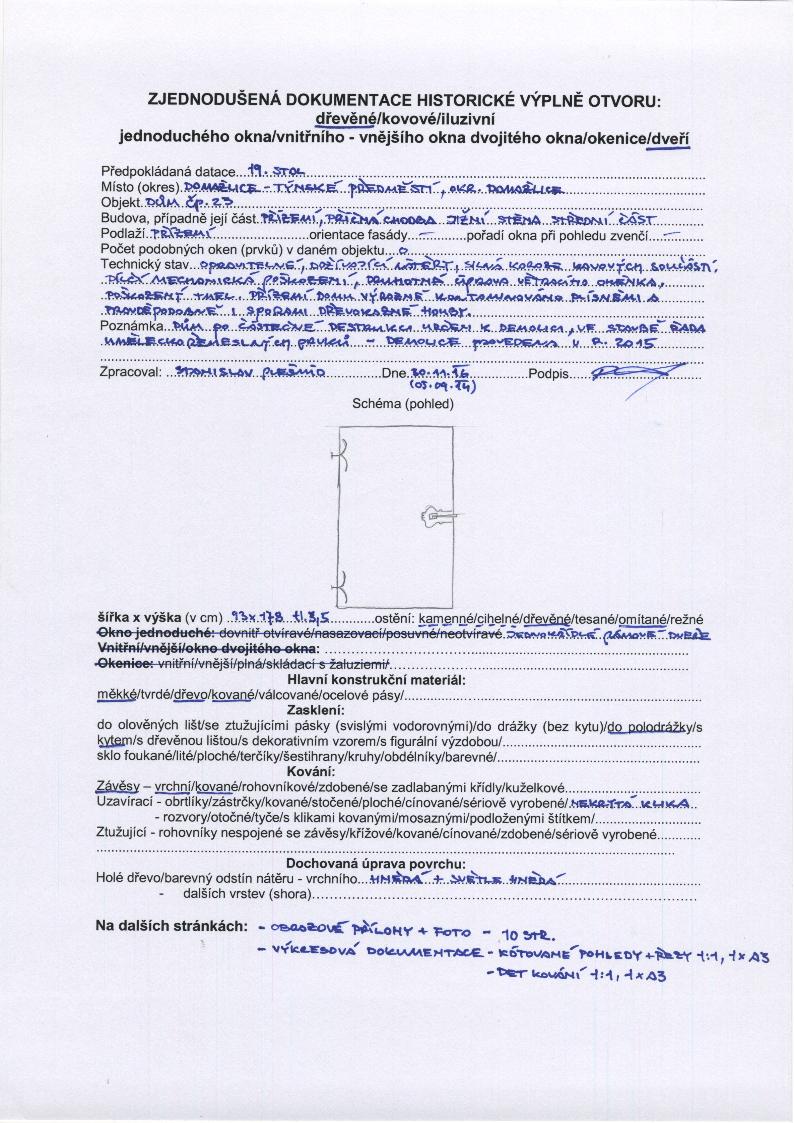 ZJEDNODUŠENÁ DOKUMENTACE HISTORICKÉ VÝPLNĚ OTVORU:
dřevěné/kovové/iluzivní
jednoduchého okna/vnitřního - vnějšího okna dvojitého okna/okenice/dveří
Předpokládaná datace...19. STOL
Místo (okres).DOMAŽLICE - TÝNSKÉ PŘEDMĚSTÍ, OKR. DOMAŽLICE
Objekt.DŮM ČP. 23
Budova, případně její část.PŘÍZEMÍ, PŘÍČNÁ CHODBA JIŽNÍ STĚNA STŘEDNÍ ČÁST
Podlaží.PŘÍZEMÍ orientace fasády – pořadí okna při pohledu zvenčí –
Počet podobných oken (prvků) v daném objektu...0
Technický stav...OPRAVITELNÉ, DOŽÍVAJÍCÍ NÁTĚRY, SILNÁ KOROZE KOVOVÝCH SOUČÁSTÍ,
DÍLČÍ MECHANICKÁ POŠKOZENÍ, DRUHOTNÁ ÚPRAVA VĚTRACÍHO OKÉNKA,
POŠKOZENÝ TMEL. PŘÍZEMÍ DOMU VÝRAZNĚ KONTAMINOVÁNO PLÍSNĚMI A
PRAVDĚPODOBNĚ I SPORAMI DŘEVOKAZNÉ HOUBY.
Poznámka.DŮM PO ČÁSTEČNÉ DESTRUKCI URČEN K DEMOLICI, VE STAVBĚ ŘADA
UMĚLECKOŘEMESLNÝCH PRVKŮ - DEMOLICE PROVEDENA V R. 2015
Zpracoval: STANISLAV PLEŠMÍD Dne.20.11.16 Podpis
(05.09.14)
Schéma (pohled)
šířka x výška (v cm) 93x178 tl.3,5 ostění: kamenné/cihelné/dřevěné/tesané/omítané/režné
Okno jednoduché: dovnitř otvíravé/nasazovací/posuvné/neotvíravé JEDNOKŘÍDLÉ RÁMOVÉ DVEŘE
Vnitřní/vnější/okno dvojitého okna:
Okenice: vnitřní/vnější/plná/skládací s žaluziemi/
Hlavní konstrukční materiál:
měkké/tvrdé/dřevo/kované/válcované/ocelové pásy/
Zasklení:
do olověných lišt/se ztužujícími pásky (svislými vodorovnými)/do drážky (bez kytu)/do polodrážky/s
kytem/s dřevěnou lištou/s dekorativním vzorem/s figurální výzdobou/
sklo foukané/lité/ploché/terčíky/šestihrany/kruhy/obdélníky/barevné/
Kování:
Závěsy – vrchní/kované/rohovníkové/zdobené/se zadlabanými křídly/kuželkové
Uzavírací - obrtlíky/zástrčky/kované/stočené/ploché/cínované/sériově vyrobené/NEKRYTÁ KLIKA
- rozvory/otočné/tyče/s klikami kovanými/mosaznými/podloženými štítkem/
Ztužující - rohovníky nespojené se závěsy/křížové/kované/cínované/zdobené/sériově vyrobené
Dochovaná úprava povrchu:
Holé dřevo/barevný odstín nátěru - vrchního...HNĚDÁ + SVĚTLE HNĚDÁ
- dalších vrstev (shora)
Na dalších stránkách: - OBRAZOVÉ PŘÍLOHY + FOTO - 10 STR.
- VÝKRESOVÁ DOKUMENTACE - KÓTOVANÉ POHLEDY + ŘEZY 1:1, 1x A3
- DET KOVÁNÍ 1:1, 1x A3